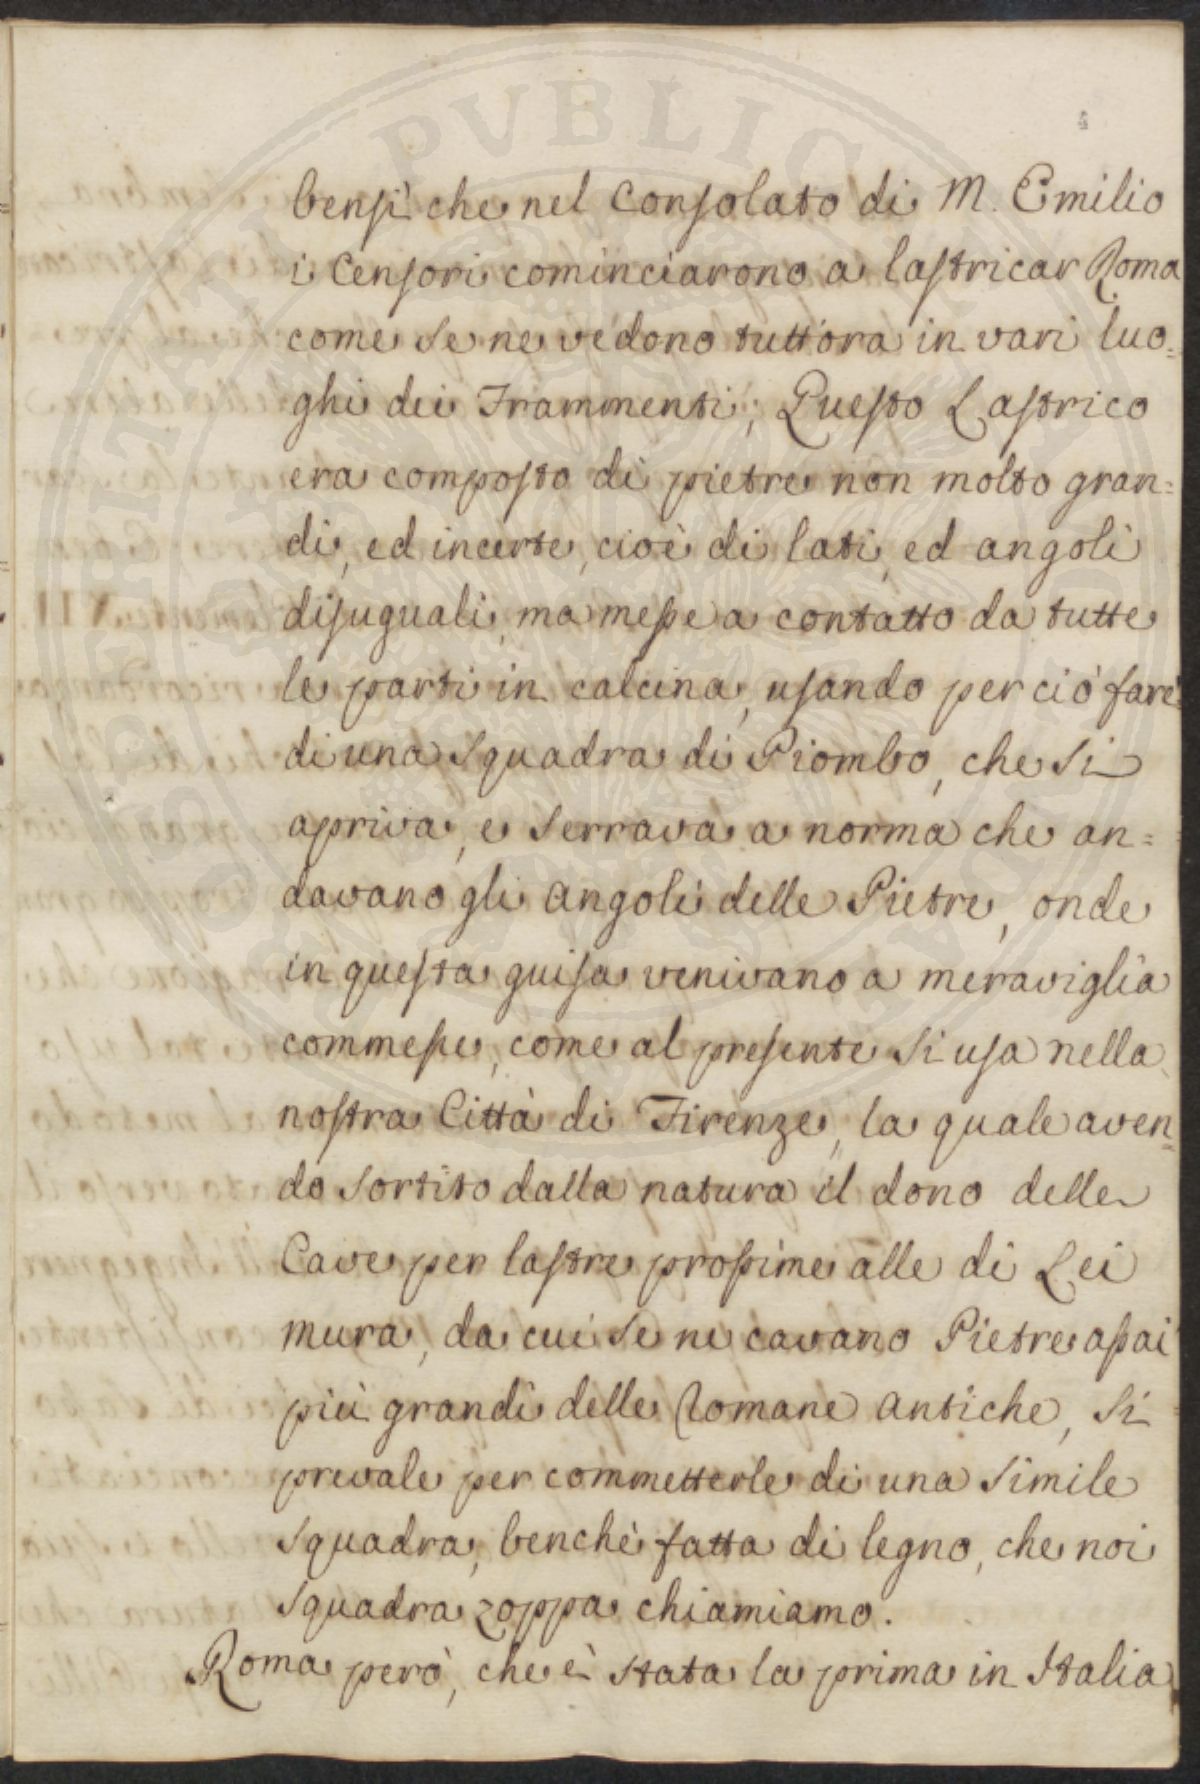 bensì che nel Consolato di M. Emilio
i Censori cominciarono a lastricar Roma
come se ne vedono tutt'ora in vari luo=
ghi dei Frammenti; Questo Lastrico
era composto di pietre non molto gran=
di, ed incerte, cioè di lati, ed angoli
disuguali, ma messe a contatto da tutte
le parti in calcina, usando per ciò fare
di una Squadra di Piombo, che si
apriva, e serrava a norma che an=
davano gli angoli delle Pietre, onde
in questa guisa venivano a meraviglia
commesse, come al presente si usa nella
nostra Città di Firenze, la quale aven=
do sortito dalla natura il dono delle
Cave per lastre prossime alle di Lei
mura, da cui se ne cavano Pietre assai
più grandi delle Romane antiche, si
prevale per commetterle di una simile
squadra, benchè fatta di legno, che noi
squadra zoppa chiamiamo.
Roma però, che è stata la prima in Italia